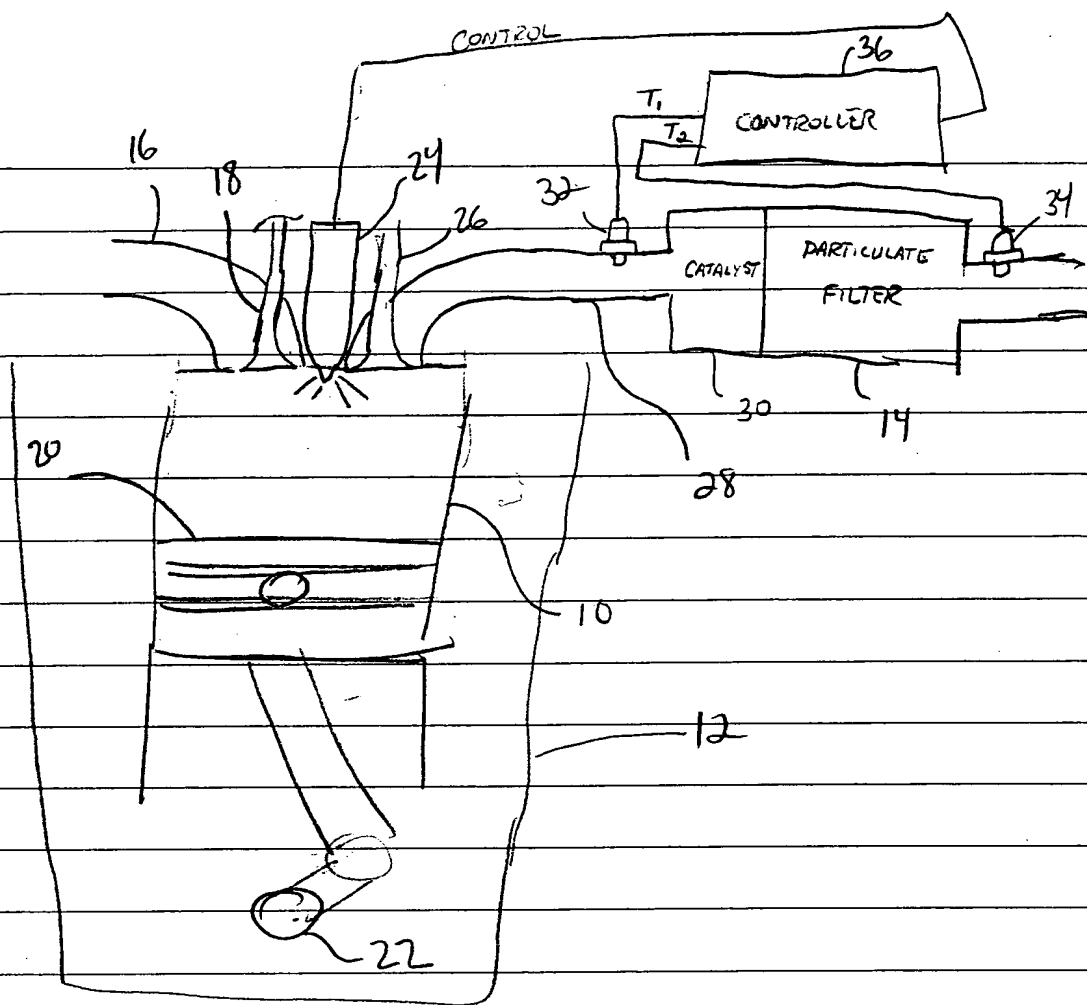 CONTROL
36
T1
CONTROLLER
T2
16
18
24
32
34
26
CATALYST
PARTICULATE
FILTER
30
14
28
20
10
12
22